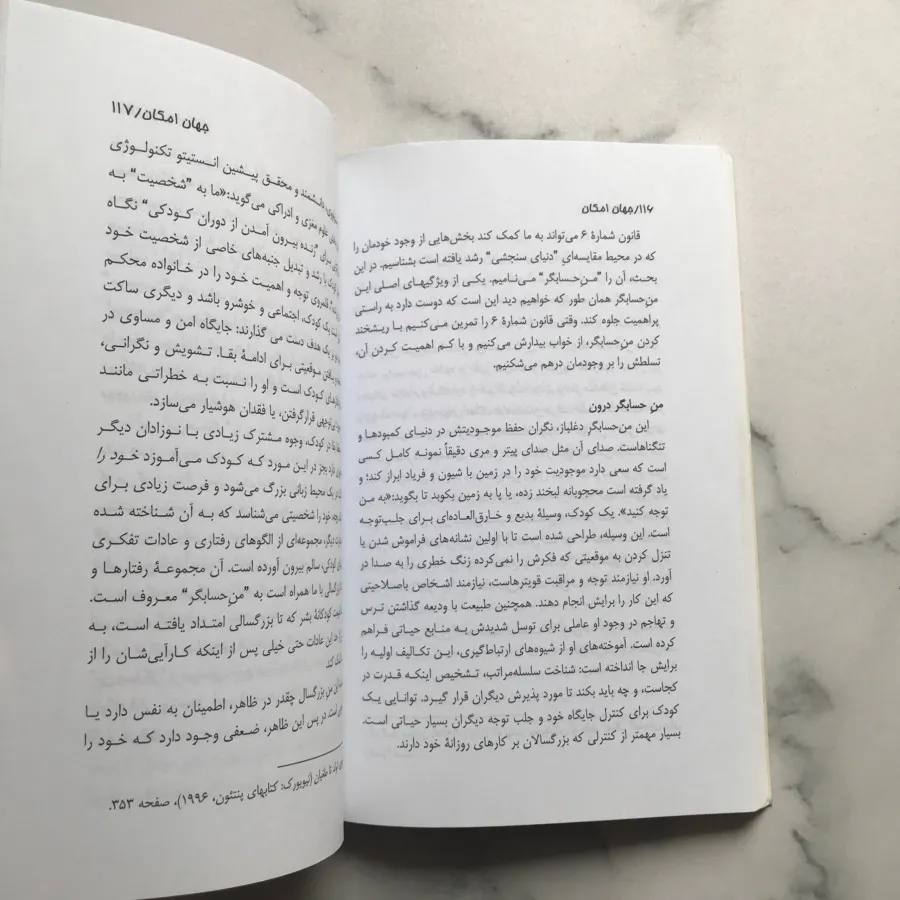 ۱۱۶/جهان امکان
قانون شمارهٔ ۶ می‌تواند به ما کمک کند بخش‌هایی از وجود خودمان را
که در محیط مقایسه‌ایِ "دنیای سنجشی" رشد یافته است بشناسیم. در این
بحث، آن را "منِ‌حسابگر" می‌نامیم. یکی از ویژگیهای اصلی این
منِ‌حسابگر همان طور که خواهیم دید این است که دوست دارد به راستی
پراهمیت جلوه کند. وقتی قانون شمارهٔ ۶ را تمرین می‌کنیم با ریشخند
کردن منِ‌حسابگر، از خواب بیدارش می‌کنیم و با کم اهمیت کردن آن،
تسلطش را بر وجودمان درهم می‌شکنیم.
منِ حسابگر درون
این منِ‌حسابگرِ دغلباز، نگران حفظ موجودیتش در دنیای کمبودها و
تنگناهاست. صدای آن مثل صدای پیتر و مری دقیقاً نمونه کامل کسی
است که سعی دارد موجودیت خود را در زمین با شیون و فریاد ابراز کند؛ و
یاد گرفته است محجوبانه لبخند زده، یا پا به زمین بکوبد تا بگوید:«به من
توجه کنید». یک کودک، وسیلهٔ بدیع و خارق‌العاده‌ای برای جلب‌توجه
است. این وسیله، طراحی شده است تا با اولین نشانه‌های فراموش شدن یا
تنزل کردن به موقعیتی که فکرش را نمی‌کرده زنگ خطری را به صدا در
آورد. او نیازمند توجه و مراقبت قویترهاست، نیازمند اشخاص باصلاحیتی
که این کار را برایش انجام دهند. همچنین طبیعت با ودیعه گذاشتن ترس
و تهاجم در وجود او عاملی برای توسل شدیدش به منابع حیاتی فراهم
کرده است. آموخته‌های او از شیوه‌های ارتباط‌گیری، این تکالیف اولیه را
برایش جا انداخته است: شناخت سلسله‌مراتب، تشخیص اینکه قدرت در
کجاست، و چه باید بکند تا مورد پذیرش دیگران قرار گیرد. توانایی یک
کودک برای کنترل جایگاه خود و جلب توجه دیگران بسیار حیاتی است.
بسیار مهمتر از کنترلی که بزرگسالان بر کارهای روزانهٔ خود دارند.
جهان امکان/۱۱۷
دانشمند و محقق پیشین انستیتو تکنولوژی
علوم مغزی و ادراکی می‌گوید:«ما به "شخصیت" به
برای "زنده بیرون آمدن از دوران کودکی" نگاه
رشد و تبدیل جنبه‌های خاصی از شخصیت خود
توجه و اهمیت خود را در خانواده محکم
یک کودک، اجتماعی و خوشرو باشد و دیگری ساکت
یک هدف دست می گذارند: جایگاه امن و مساوی در
موقعیتی برای ادامهٔ بقا. تشویش و نگرانی،
کودک است و او را نسبت به خطراتی مانند
قرارگرفتن، یا فقدان هوشیار می‌سازد.
در کودک، وجوه مشترک زیادی با نوزادان دیگر
بجز در این مورد که کودک می‌آموزد خود را
یک محیط زبانی بزرگ می‌شود و فرصت زیادی برای
خود را شخصیتی می‌شناسد که به آن شناخته شده
دیگر، مجموعه‌ای از الگوهای رفتاری و عادات تفکری
کودکی، سالم بیرون آورده است. آن مجموعهٔ رفتارها و
با ما همراه است به "منِ‌حسابگر" معروف است.
کودکانهٔ بشر که تا بزرگسالی امتداد یافته است، به
این عادات حتی خیلی پس از اینکه کارآیی‌شان را از
کند.
این من بزرگسال چقدر در ظاهر، اطمینان به نفس دارد یا
است، در پس این ظاهر، ضعفی وجود دارد که خود را
تا طغیان (نیویورک: کتابهای پنتئون، ۱۹۹۶)، صفحه ۳۵۳.